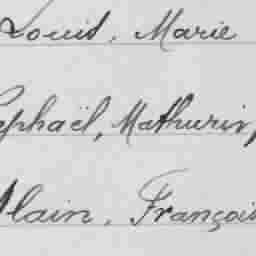 Louis, Marie
Raphaël, Mathurin,
Alain, François